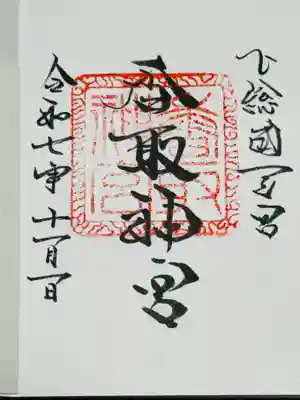 下総國一之宮
香取神宮
令和七年十一月一日